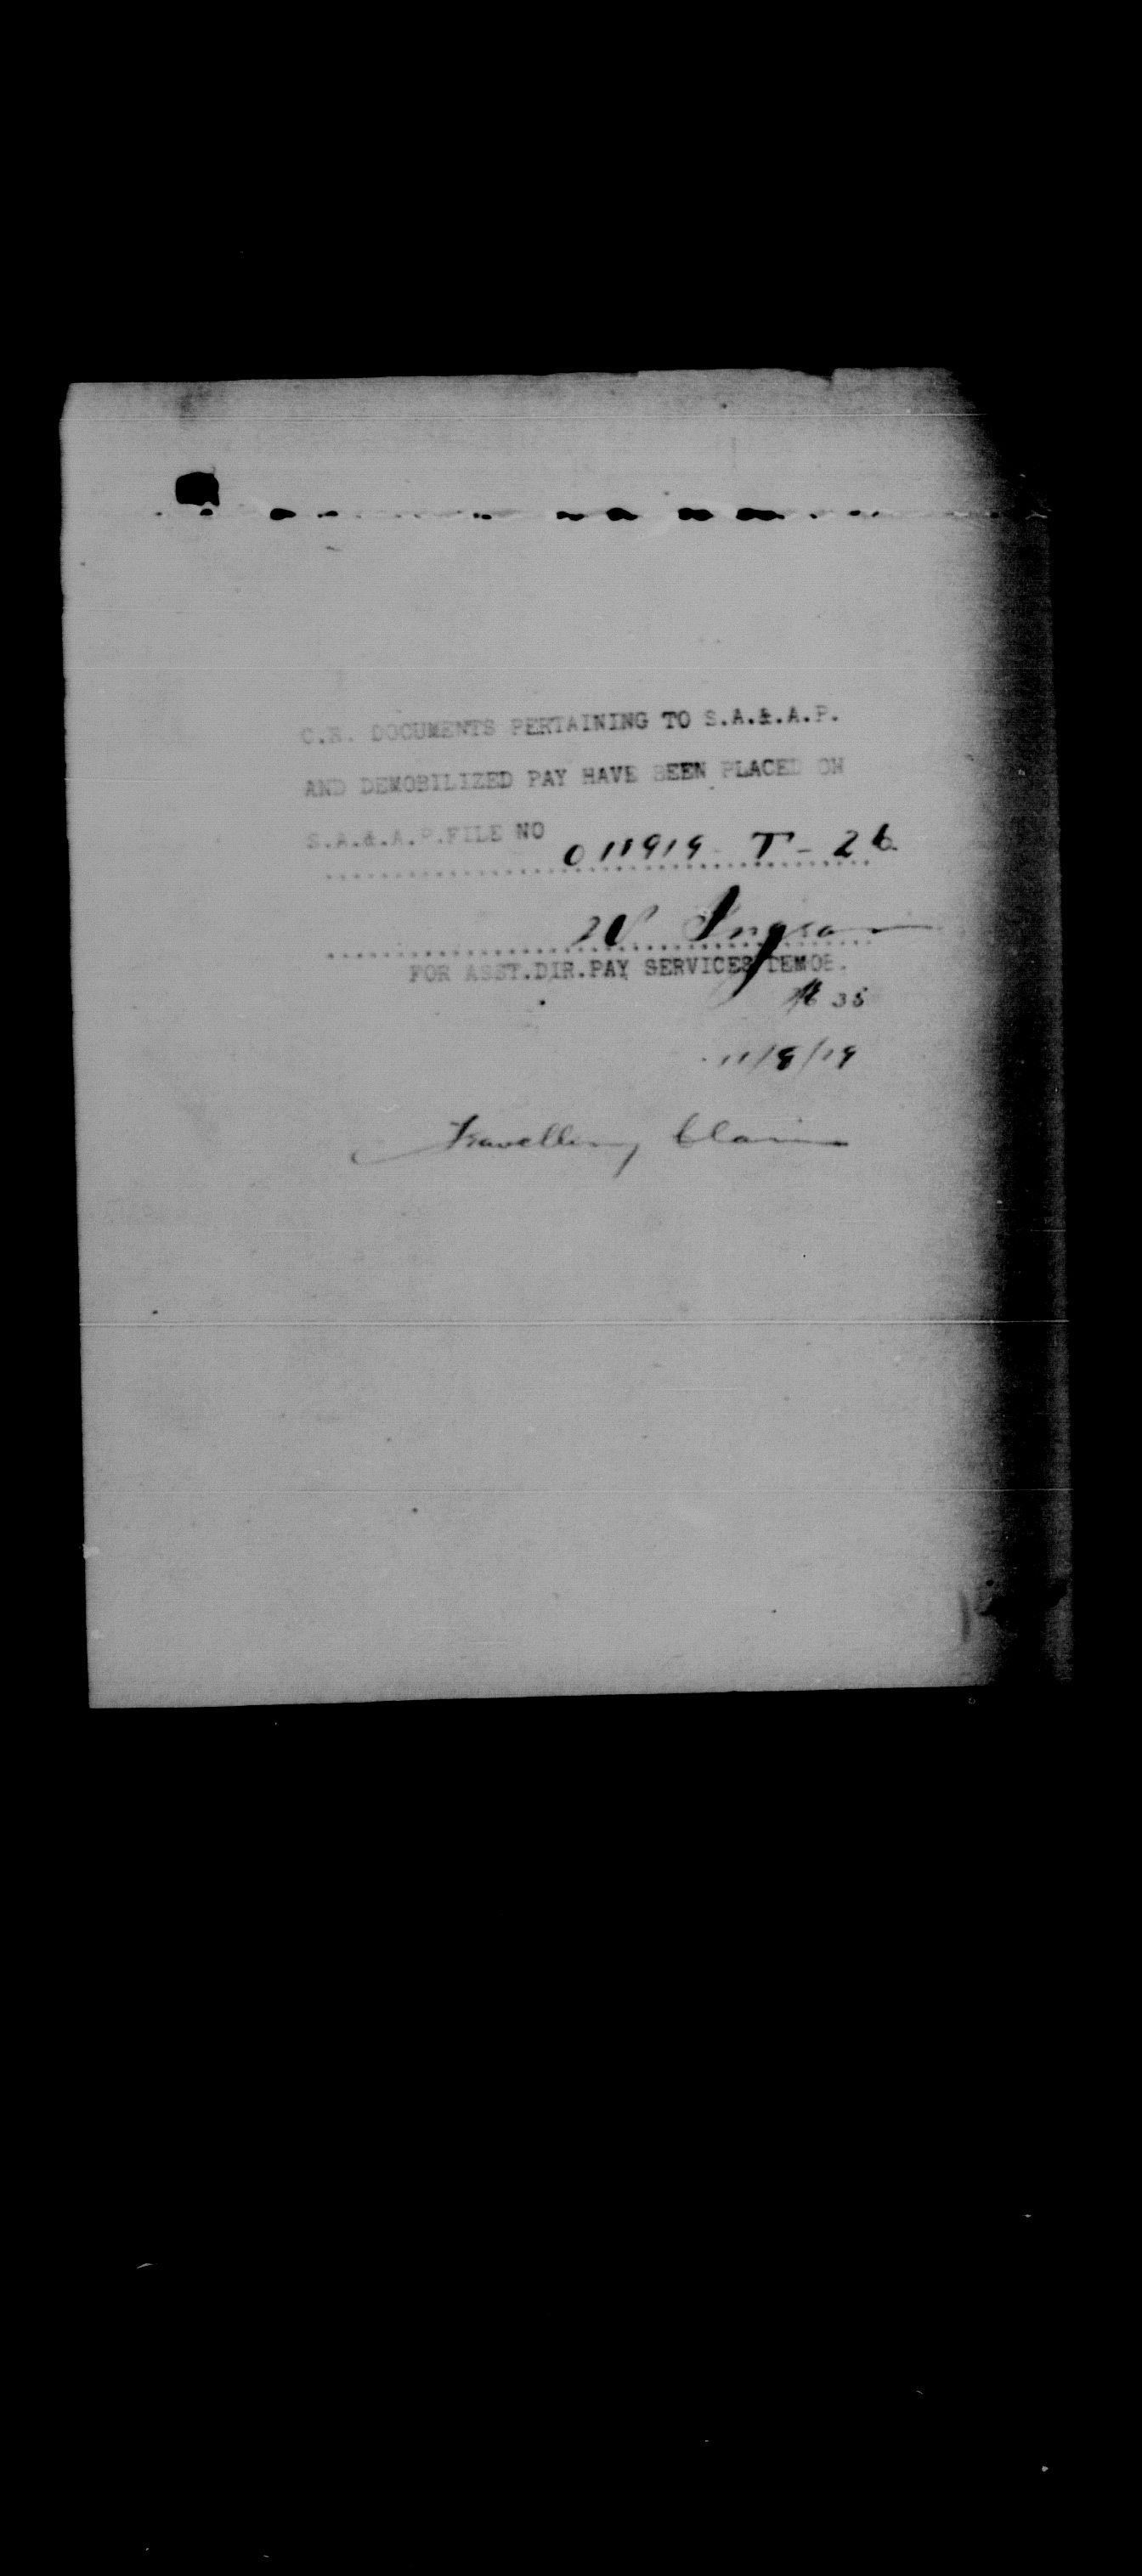 C.R. DOCUMENTS PERTAINING TO S.A.&.A.P.
AND DEMOBILIZED PAY HAVE BEEN PLACED ON
S.A.&.A.P.FILE NO
011919 - T - 26
W Ingram
FOR ASST.DIR.PAY SERVICES DEMOB.
35
11/8/19
Travelling Claim